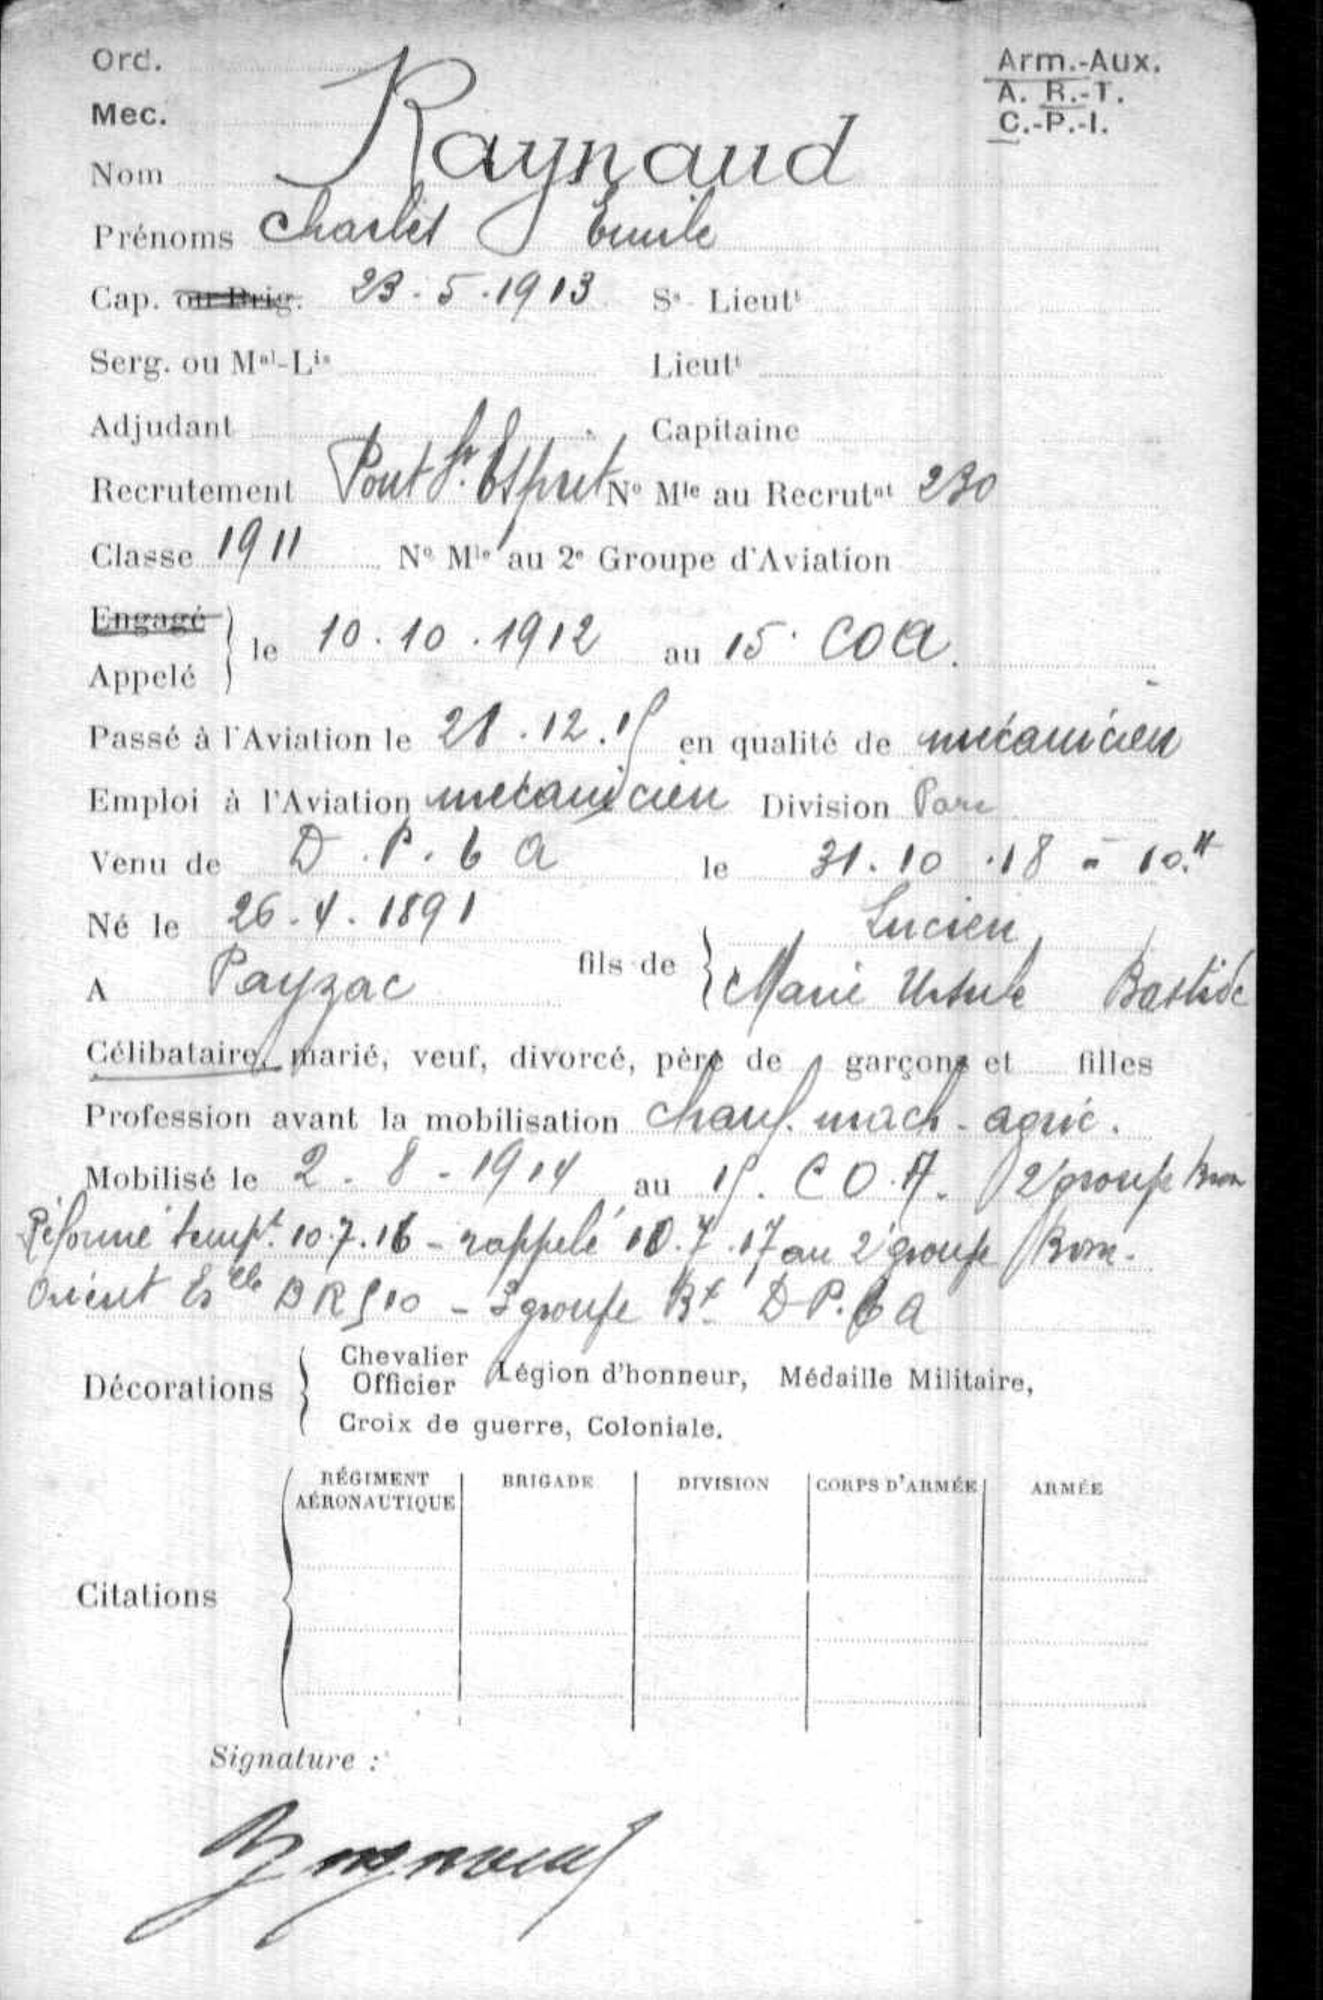 Ord.
Arm.-Aux.
Mec.
A. R.-T.
C.-P.-I.
Nom Raynaud
Prénoms Charles Emile
Cap. ou Brig. 23.5.1913 Ss- Lieutt
Serg. ou Mal-Lis Lieutt
Adjudant Capitaine
Recrutement Pont St. Esprit No Mle au Recrutnt 230
Classe 1911 No Mle au 2e Groupe d'Aviation
Engagé
Appelé le 10.10.1912 au 15. COA.
Passé à l'Aviation le 28.12.15 en qualité de mécanicien
Emploi à l'Aviation mecanicien Division Parc
Venu de D.P.6 A le 31.10.18 = 10.H
Né le 26.4.1891 fils de Lucien
A Payzac Marie Ursule Bastide
Célibataire, marié, veuf, divorcé, père de garçons et filles
Profession avant la mobilisation Chauf. mach. agric.
Mobilisé le 2.8-1914 au 15. C O.A. 2 groupe Bron
Réformé tempt. 10.7.16 - rappelé 10.7.17 au 2 groupe Bron.
Orient Eslle BR 510 - 3 groupe Bt D.P.6 A
Décorations Chevalier
Officier Légion d'honneur, Médaille Militaire,
Croix de guerre, Coloniale.
Citations
RÉGIMENT AÉRONAUTIQUE BRIGADE DIVISION CORPS D'ARMÉE ARMÉE
Signature :
Raynaud